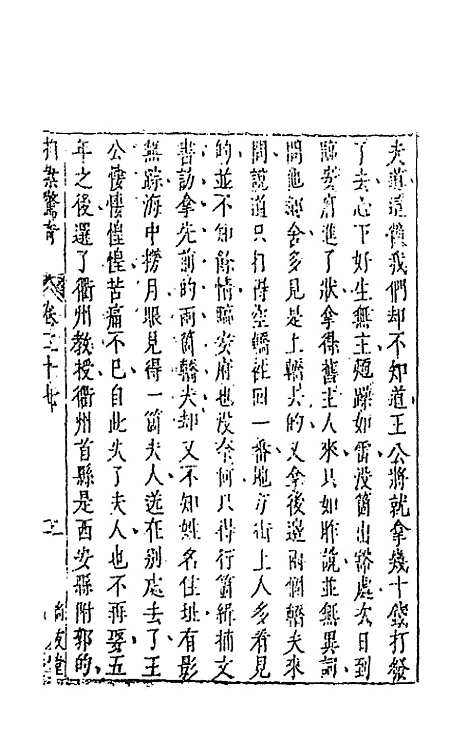 夫道這個我們却不知道王公將就拿幾十錢打發
了去心下好生無主題躁如雷沒箇出豁處次日到
臨安府進了狀拿得舊主人來只如昨說並無異詞
問他鄰舍多見是上轎去的又拿後邊兩個轎夫來
問說道只打得空轎往回一番地方街上人多看見
的並不知餘情臨安府也沒奈何只得行箇緝捕文
書訪拿先前的兩箇轎夫却又不知姓名住址有影
無踪海中撈月眼見得一箇夫人送在別處去了王
公悽悽惶惶苦痛不已自此失了夫人也不再娶五
年之後選了衢州教授衢州首縣是西安縣附郭的
拍案驚奇
卷二十七
尚友堂